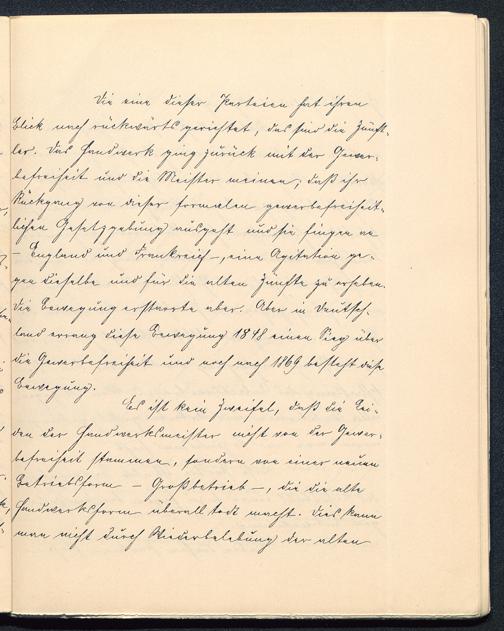 Die eine dieser Parteien hat ihren
Blick nach rückwärts gerichtet, das sind die Zünft-
ler. Das Handwerk ging zurück mit der Gewer-
befreiheit und die Meister meinen, daß ihr
Rückgang von dieser formalen gewerbefreiheit-
lichen Gesetzgebung ausgeht und sie fingen an
- England und Frankreich -, eine Agitation ge-
gen dieselbe und für die alten Zünfte zu erheben.
Die Bewegung erstarrte aber. Aber in Deutsch-
land errang diese Bewegung 1848 einen Sieg über
die Gewerbefreiheit und noch nach 1869 besteht diese
Bewegung.
Es ist kein Zweifel, daß die Lei-
den der Handwerksmeister nicht von der Gewer-
befreiheit stammen, sondern von einer neuen
Betriebsform - Großbetrieb -, die die alte
Handwerksform überall tot macht. Dies kann
man nicht durch Wiederbelebung der alten